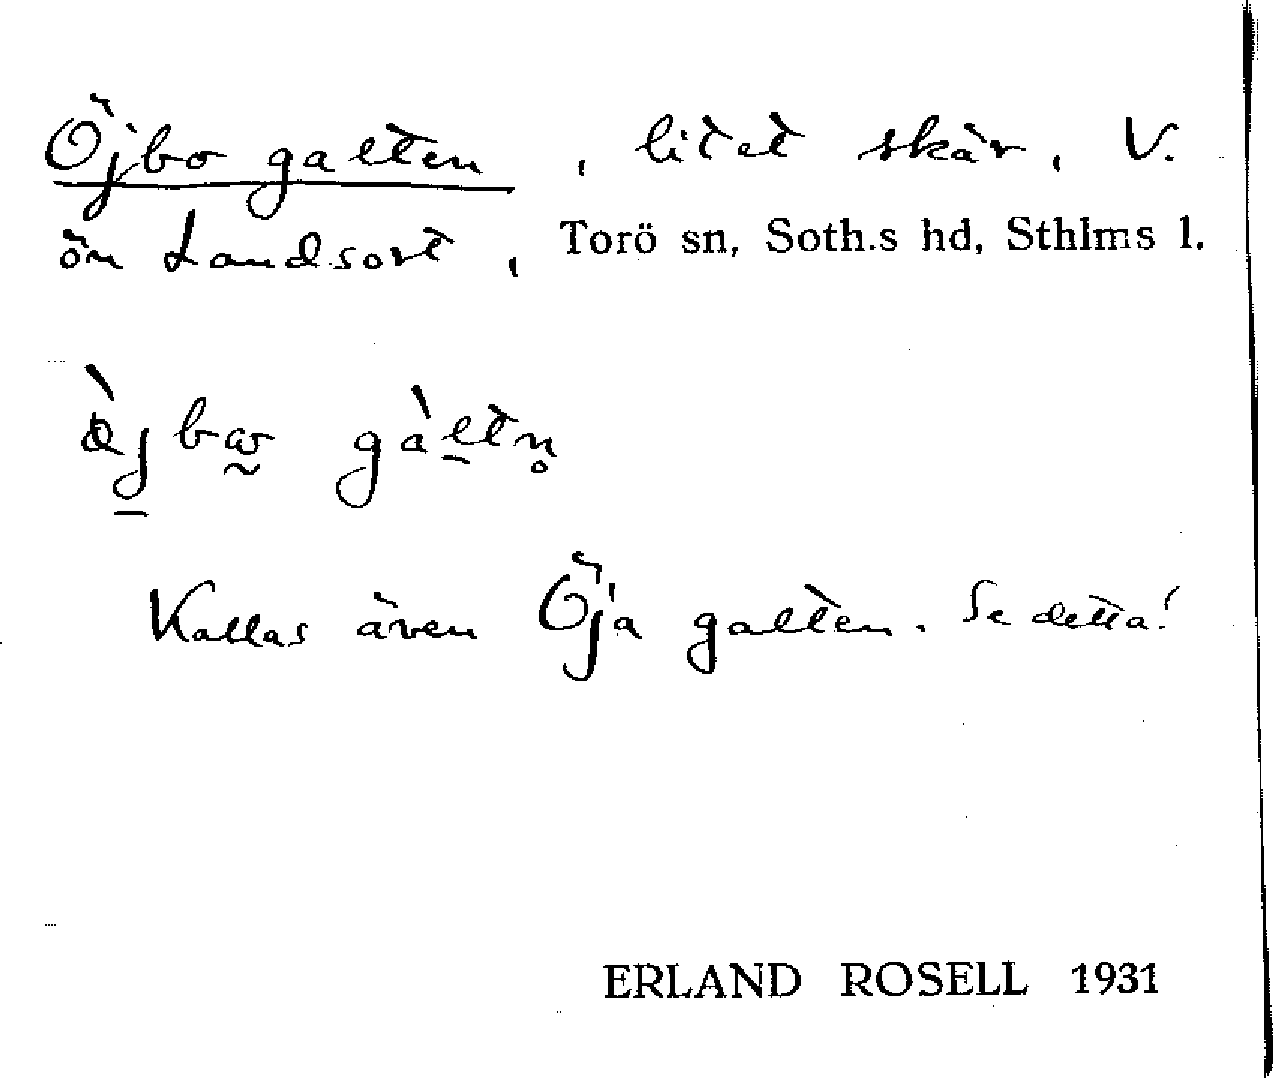 Öjbo galten, litet skär, V.
ön Landsort, Torö sn, Soth.s hd, Sthlms l.
Kallas även Öja galten. Se detta!
ERLAND ROSELL 1931